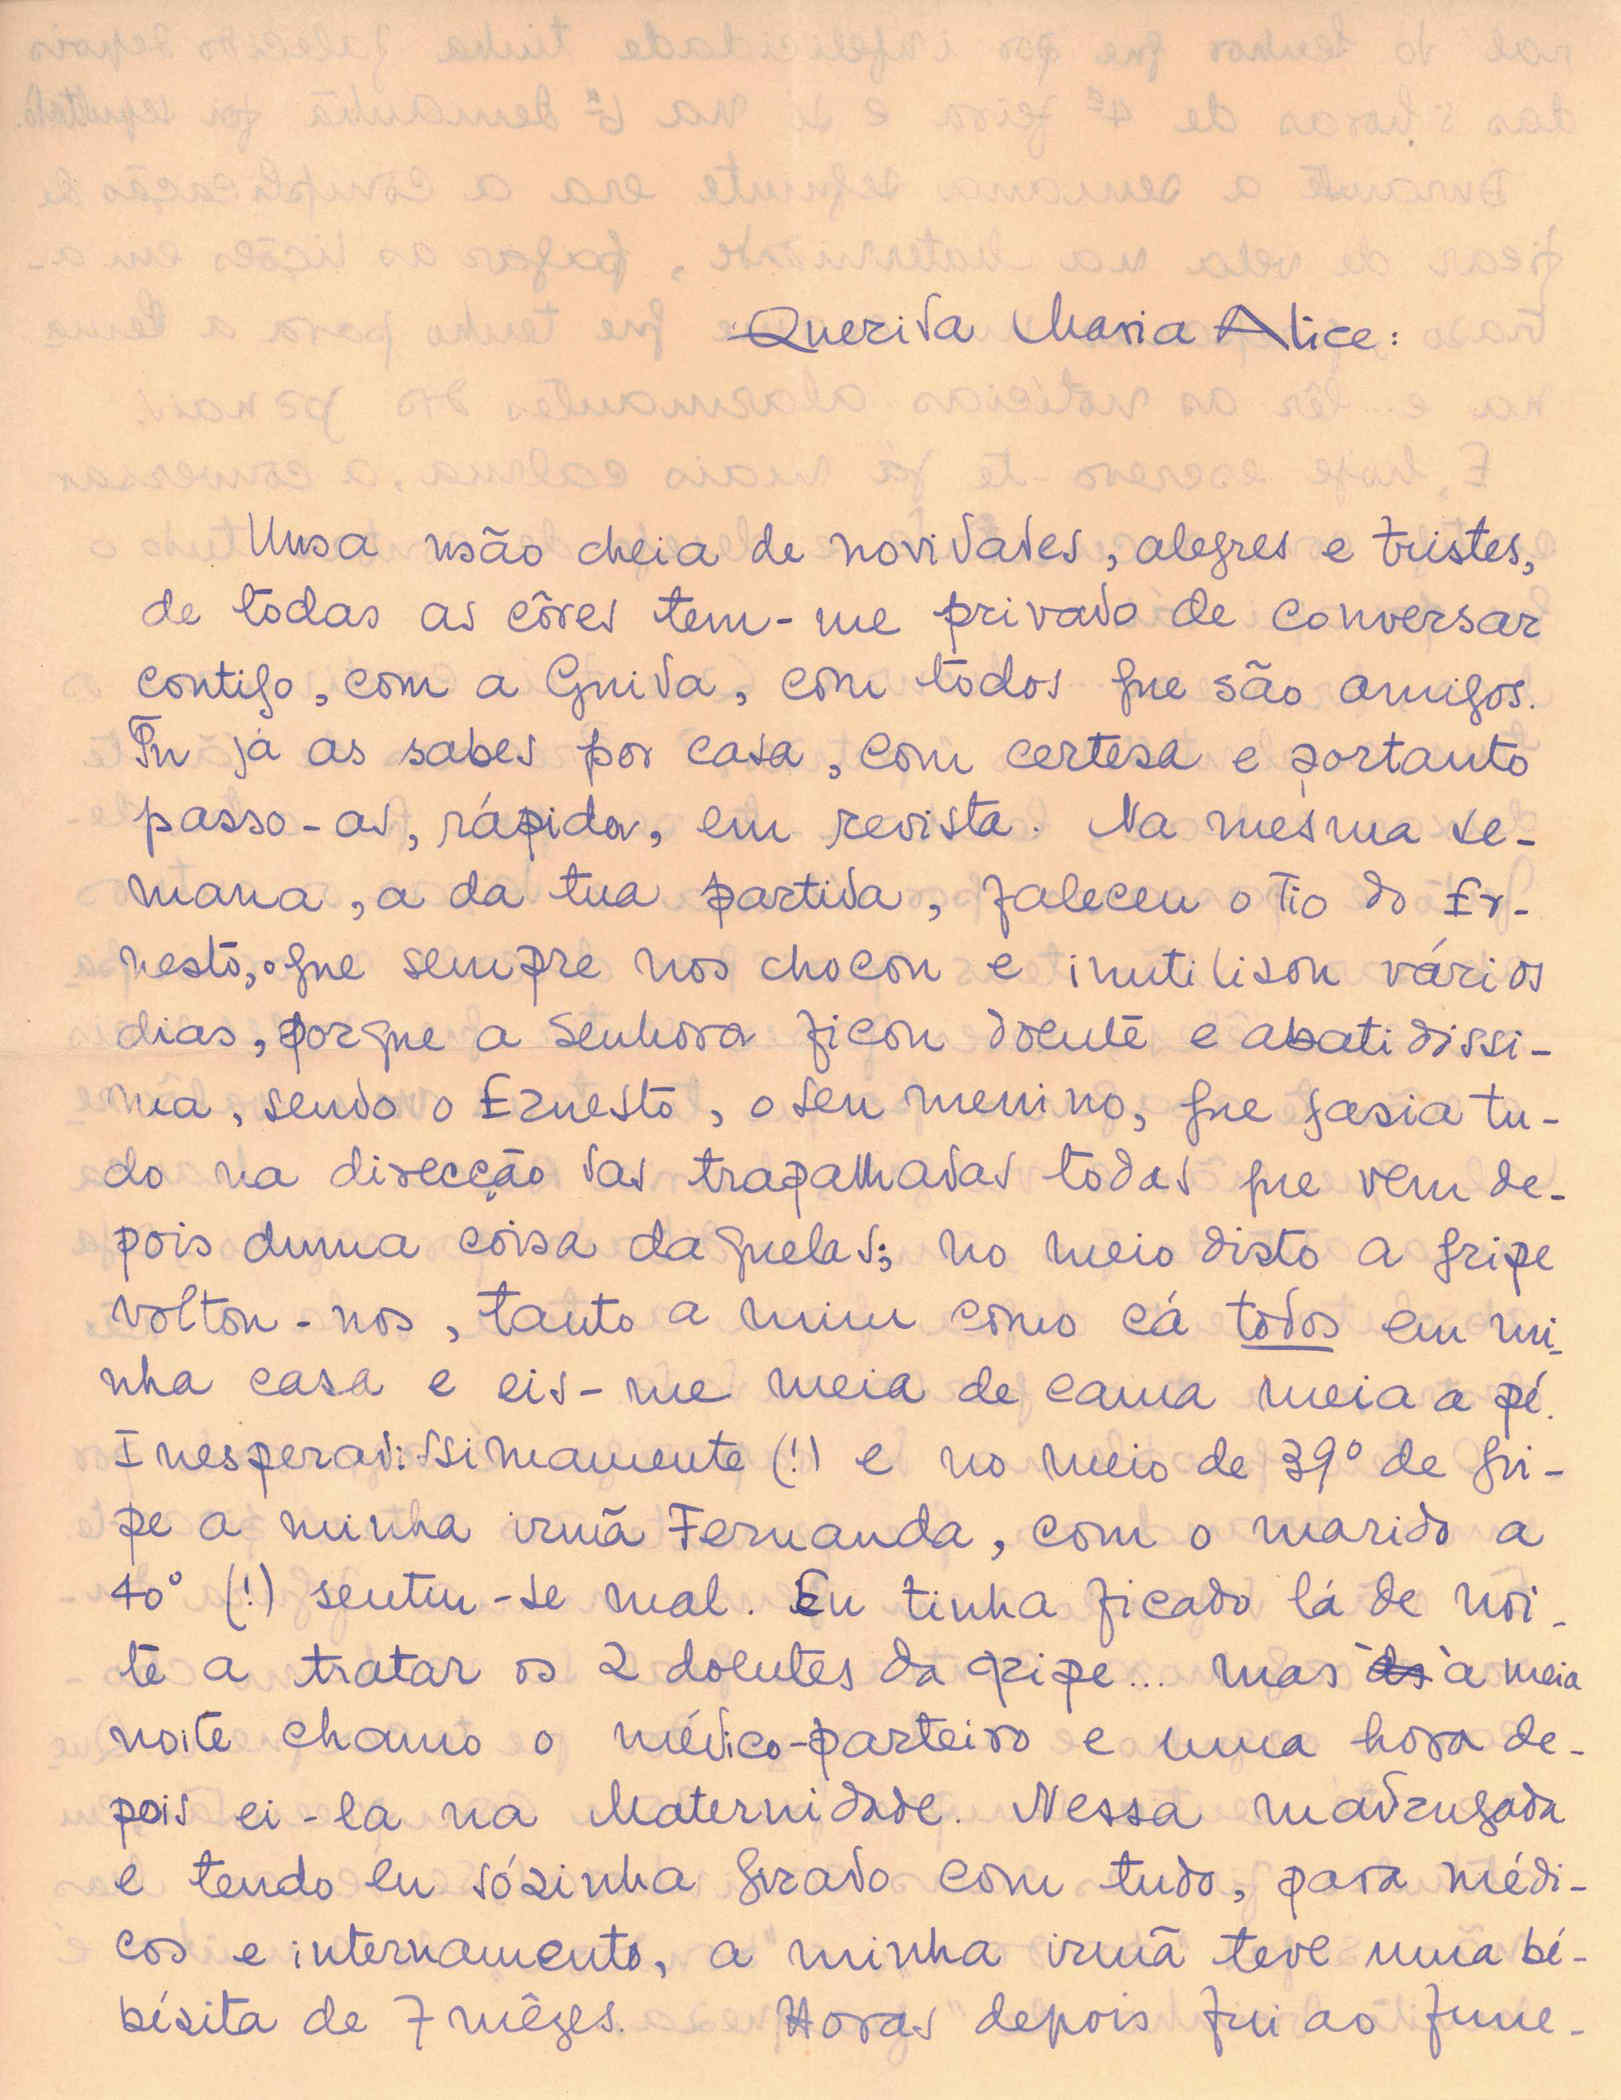 Querida Maria Alice:
Uma mão cheia de novidades, alegres e tristes,
de todas as côres tem-me privado de conversar
contigo, com a Guida, com todos que são amigos.
Tu já as sabes por casa, com certesa e portanto
passo-as, rápida, em revista. Na mesma se-
mana, a da tua partida, faleceu o Tio do Er-
nesto, o que sempre nos chocou e inutilisou vários
dias, porque a Senhora ficou doente e abatidissi-
ma, sendo o Ernesto, o seu menino, que fasia tu-
do na direcção das trapalhadas todas que vem de-
pois duma coisa daquelas; no meio disto a gripe
voltou-nos, tanto a mim como cá todos em mi-
nha casa e eis-me meia de cama meia a pé.
Inesperadissimamente (!) e no meio de 39º de gri-
pe a minha irmã Fernanda, com o marido a
40º (!) sentiu-se mal. Eu tinha ficado lá de noi-
te a tratar os 2 doentes da gripe... mas às à meia
noite chamo o médico-parteiro e uma hora de-
pois ei-la na Maternidade. Nessa madrugada
e tendo eu sósinha girado com tudo, para médi-
cos e internamento, a minha irmã teve uma bé-
bésita de 7 mêses. Horas depois fui ao fune-